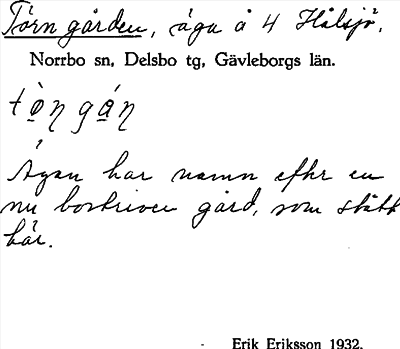 Törn gården, äga å 4 Hålsjö.
Norrbo sn, Delsbo tg, Gävleborgs län.
Ägan har namn efter en
nu bortriven gård, som stått
här.
Erik Eriksson 1932.